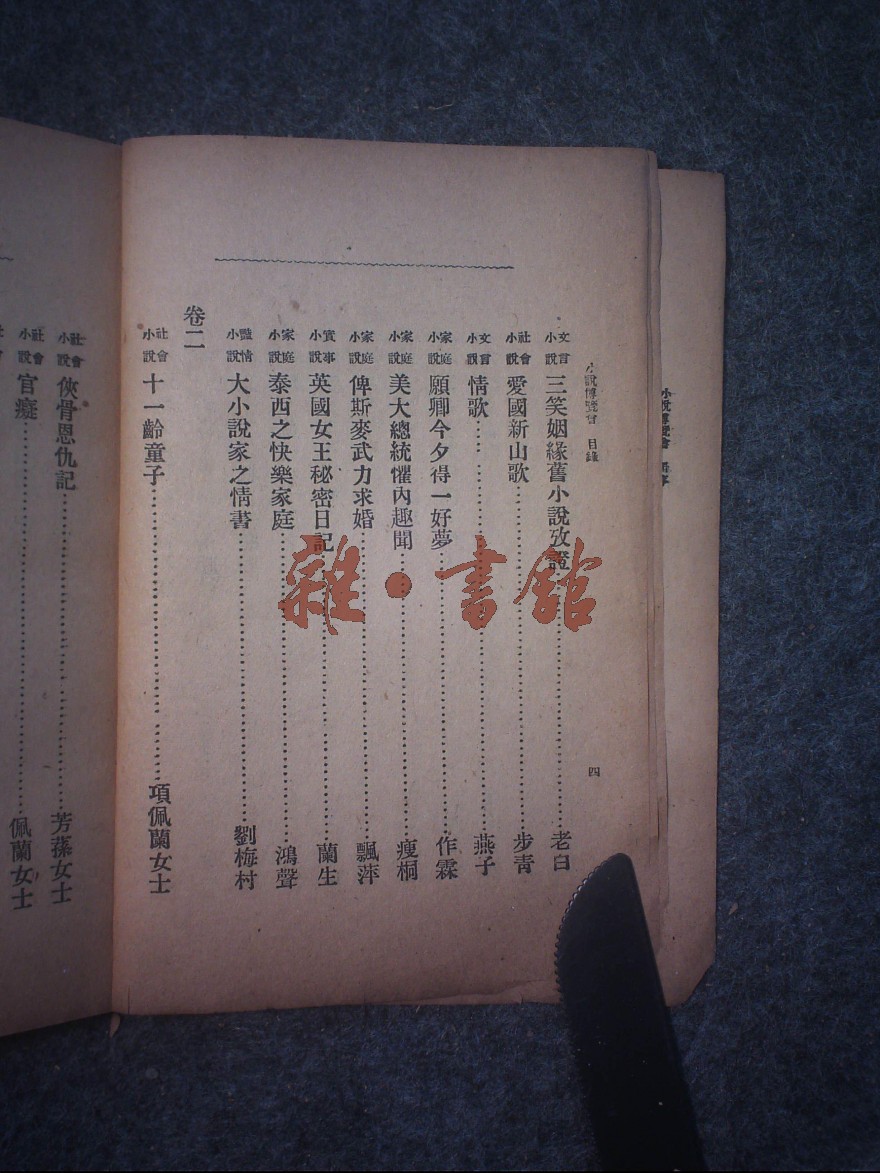 小說博覽會 目錄 四
文言小說 三笑姻緣舊小說攷證 老白
社會小說 愛國新山歌 步青
文言小說 情歌 燕子
家庭小說 願卿今夕得一好夢 作霖
家庭小說 美大總統懼內趣聞 瘦桐
家庭小說 俾斯麥武力求婚 飄萍
實事小說 英國女王秘密日記 蘭生
家庭小說 泰西之快樂家庭 鴻聲
豔情小說 大小說家之情書 劉梅村
卷二
社會小說 十一齡童子 項佩蘭女士
社會小說 俠骨恩仇記 芳蓀女士
社會小說 官癡 佩蘭女士
雜·書館